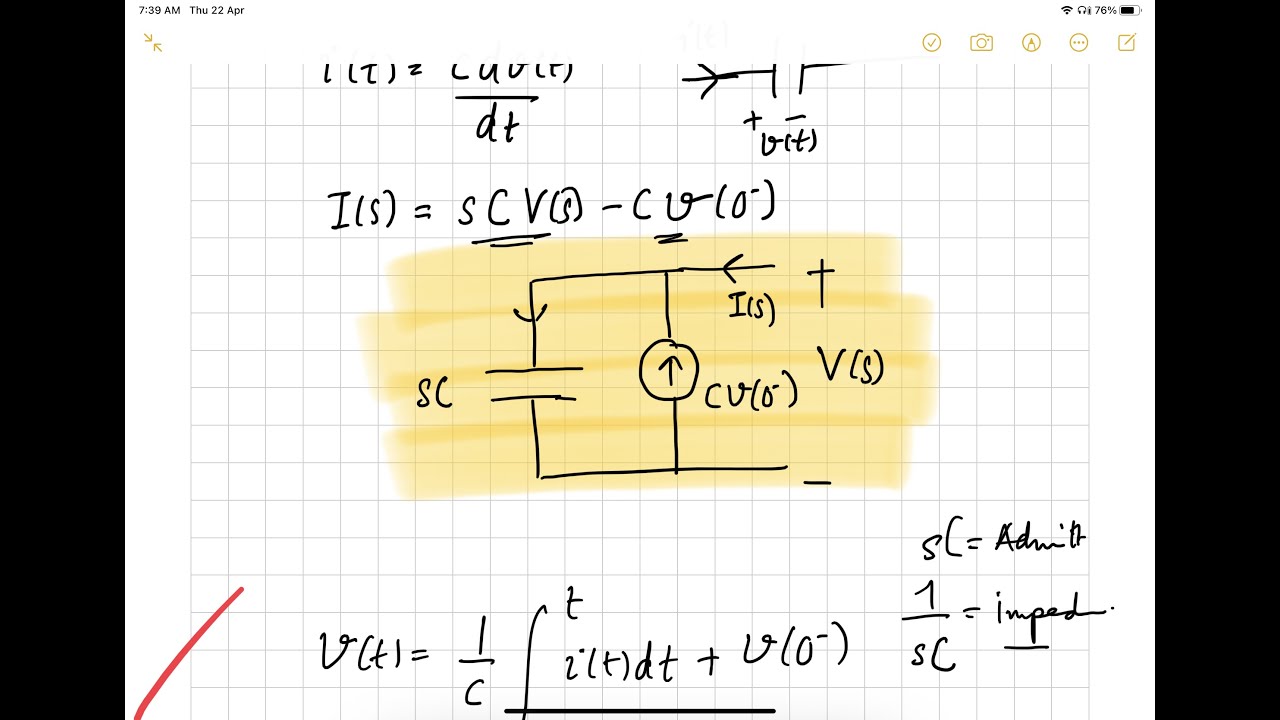 7:39 AM Thu 22 Apr 76%
i(t) = C dv(t)
dt
+ -
v(t)
I(s) = sCV(s) - Cv(0⁻)
I(s) +
V(s)
sC Cv(0⁻)
-
sC = Admitt
1/sC = imped.
v(t) = 1/C ∫ t i(t)dt + v(0⁻)